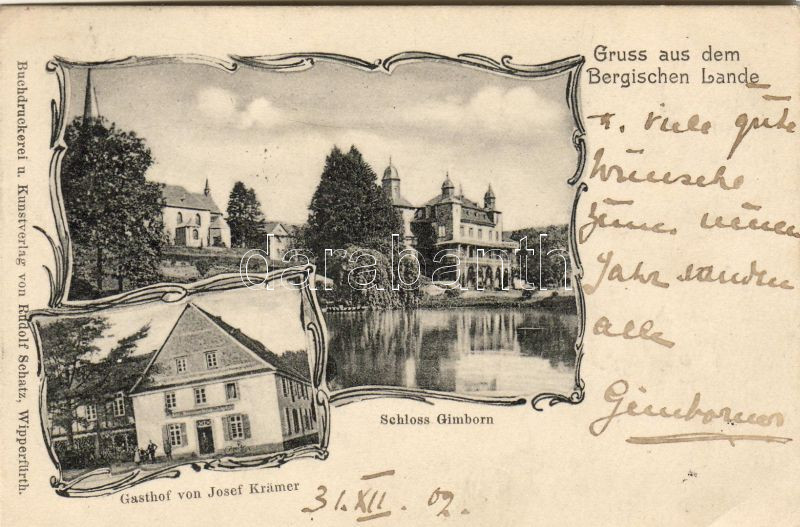 Gruss aus dem
Bergischen Lande
u. viele gute
Wünsche
zum neuen
Jahr senden
alle
Gimborner
Schloss Gimborn
Gasthof von Josef Krämer
31.XII. 02.
Buchdruckerei u. Kunstverlag von Rudolf Schatz, Wipperfürth.
darabanth